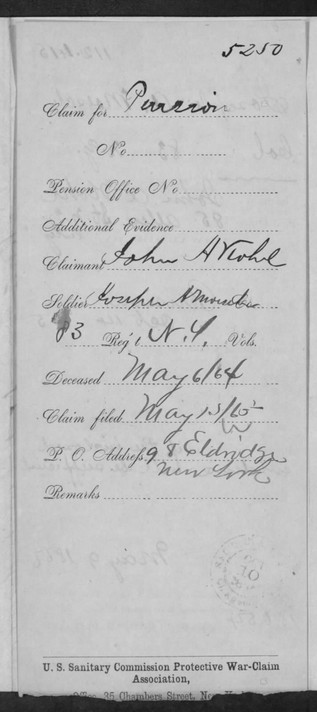 5250
Claim for Pension
No.
Pension Office No.
Additional Evidence
Claimant John H
Soldier
83 Reg't N.Y. Vols.
Deceased May 6/64
Claim filed May 15/65
P. O. Address, 98 Eldridge
New York
Remarks
U. S. Sanitary Commission Protective War-Claim
Association,
Office, 35 Chambers Street, New